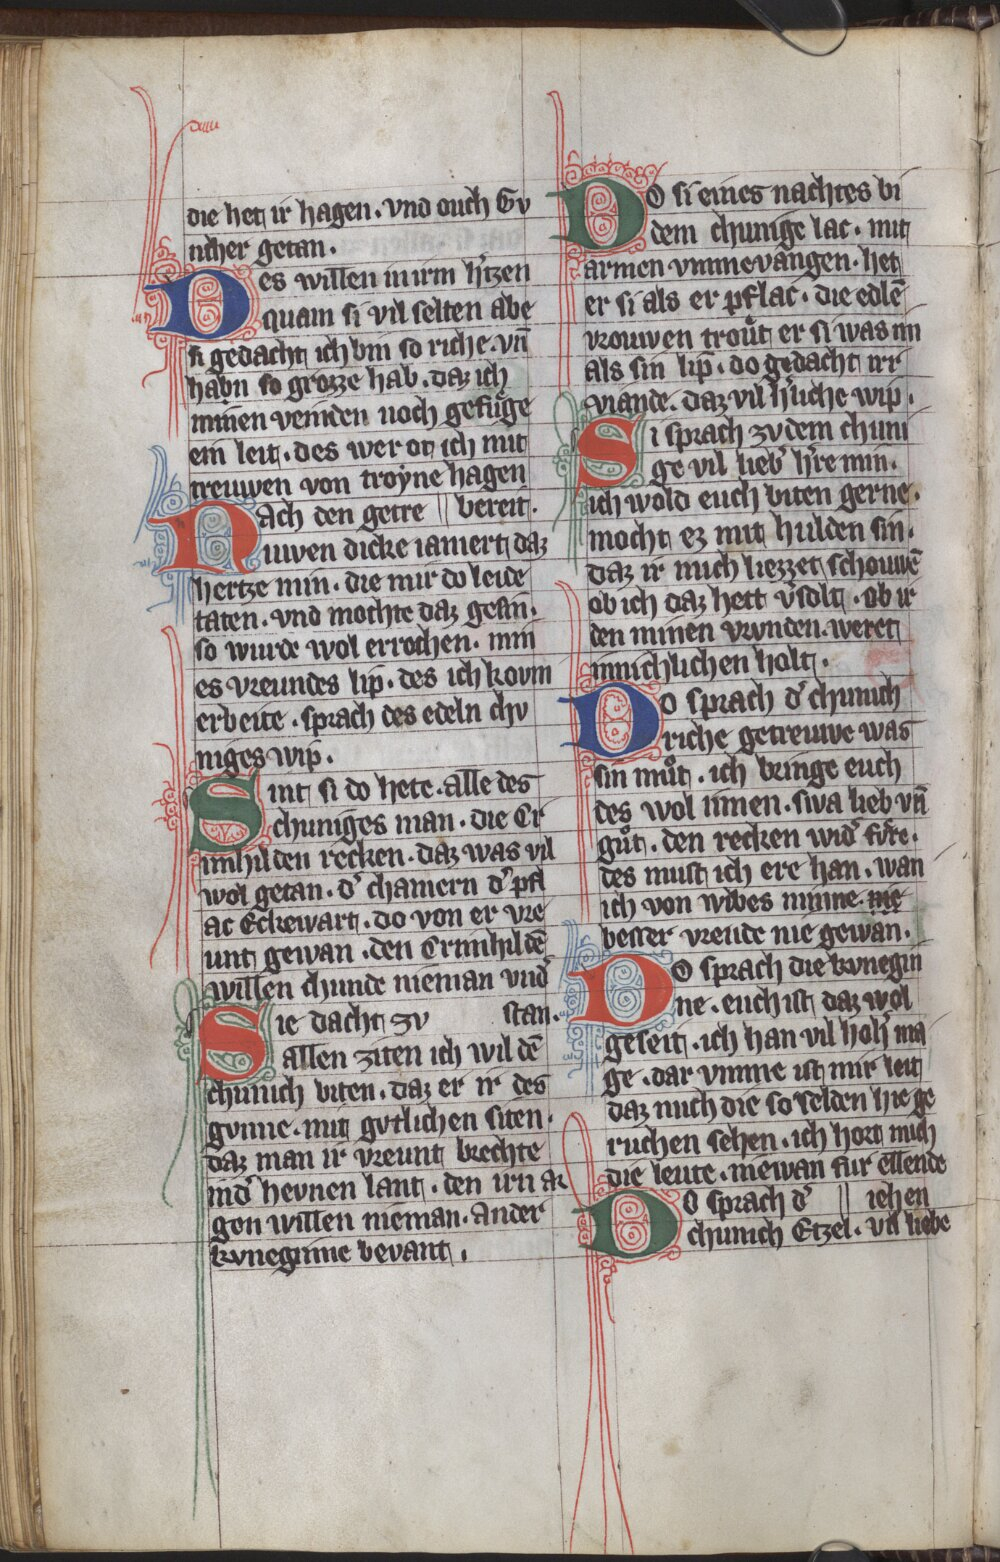 die het ir hagen. vnd ouch Gv
nther getan.
Des willen in irm h'tzen
quam si vil selten abe
si gedacht ich bin so riche. vn̄
habn so grozze hab. daz ich
minen veinden noch gefuͤge
ein leit. des wer ot ich mit
treuwen von troyne hagen
Nach den getre || bereit.
iuwen dicke iamert daz
hertze min. die mir do leide
taten. vnd mochte daz gesin.
so wurde wol errochen. min
es vreundes lip. des ich kovm
erbeite. sprach des edeln chv
niges wip.
Sint si do hete. alle des
chuniges man. die Cr
imhilden recken. daz was vil
wol getan. d' chamern d' pfl
ac Eckewart. do von er vre
unt gewan. den Crimhildē
willen chunde nieman vnd'
Sie dacht zv stan.
allen ziten ich wil dē
chunich biten. daz er ir des
gvnne. mit gvtlichen siten.
daz man ir vreunt brechte
in d' hevnen lant. den irn ar
gen willen nieman. Ander
kvneginne bevant.
DO si eines nachtes bi
dem chunige lac. mit
armen vmmevangen. het
er si als er pflac. die edlē
vrouwen trouͤt er si was im
als sin lip. do gedacht irr
viande. daz vil h'liche wip.
Si sprach zv dem chuni
ge vil lieb' h're min.
ich wold euch biten gerne.
mocht ez mit hulden sin.
daz ir mich liezzet schouwē
ob ich daz hett v'solt. ob ir
den minen vrvnden. weret
innichlichen holt.
DO sprach d' chunich
riche getreuwe was
sin muͦt. ich bringe euch
des wol innen. swa lieb vn̄
guͦt. den recken wid' fvre.
des must ich ere han. wan
ich von wibes minne. nie
bester vreude nie gewan.
DO sprach die kvnegin
ne. euch ist daz wol
geseit. ich han vil hoh' ma
ge. dar vmme ist mir leit
daz mich die so selden hie ge
ruchen sehen. ich hort mich
die leute. niewan fur ellende
DO sprach d' || iehen
chunich Etzel. vil liebe